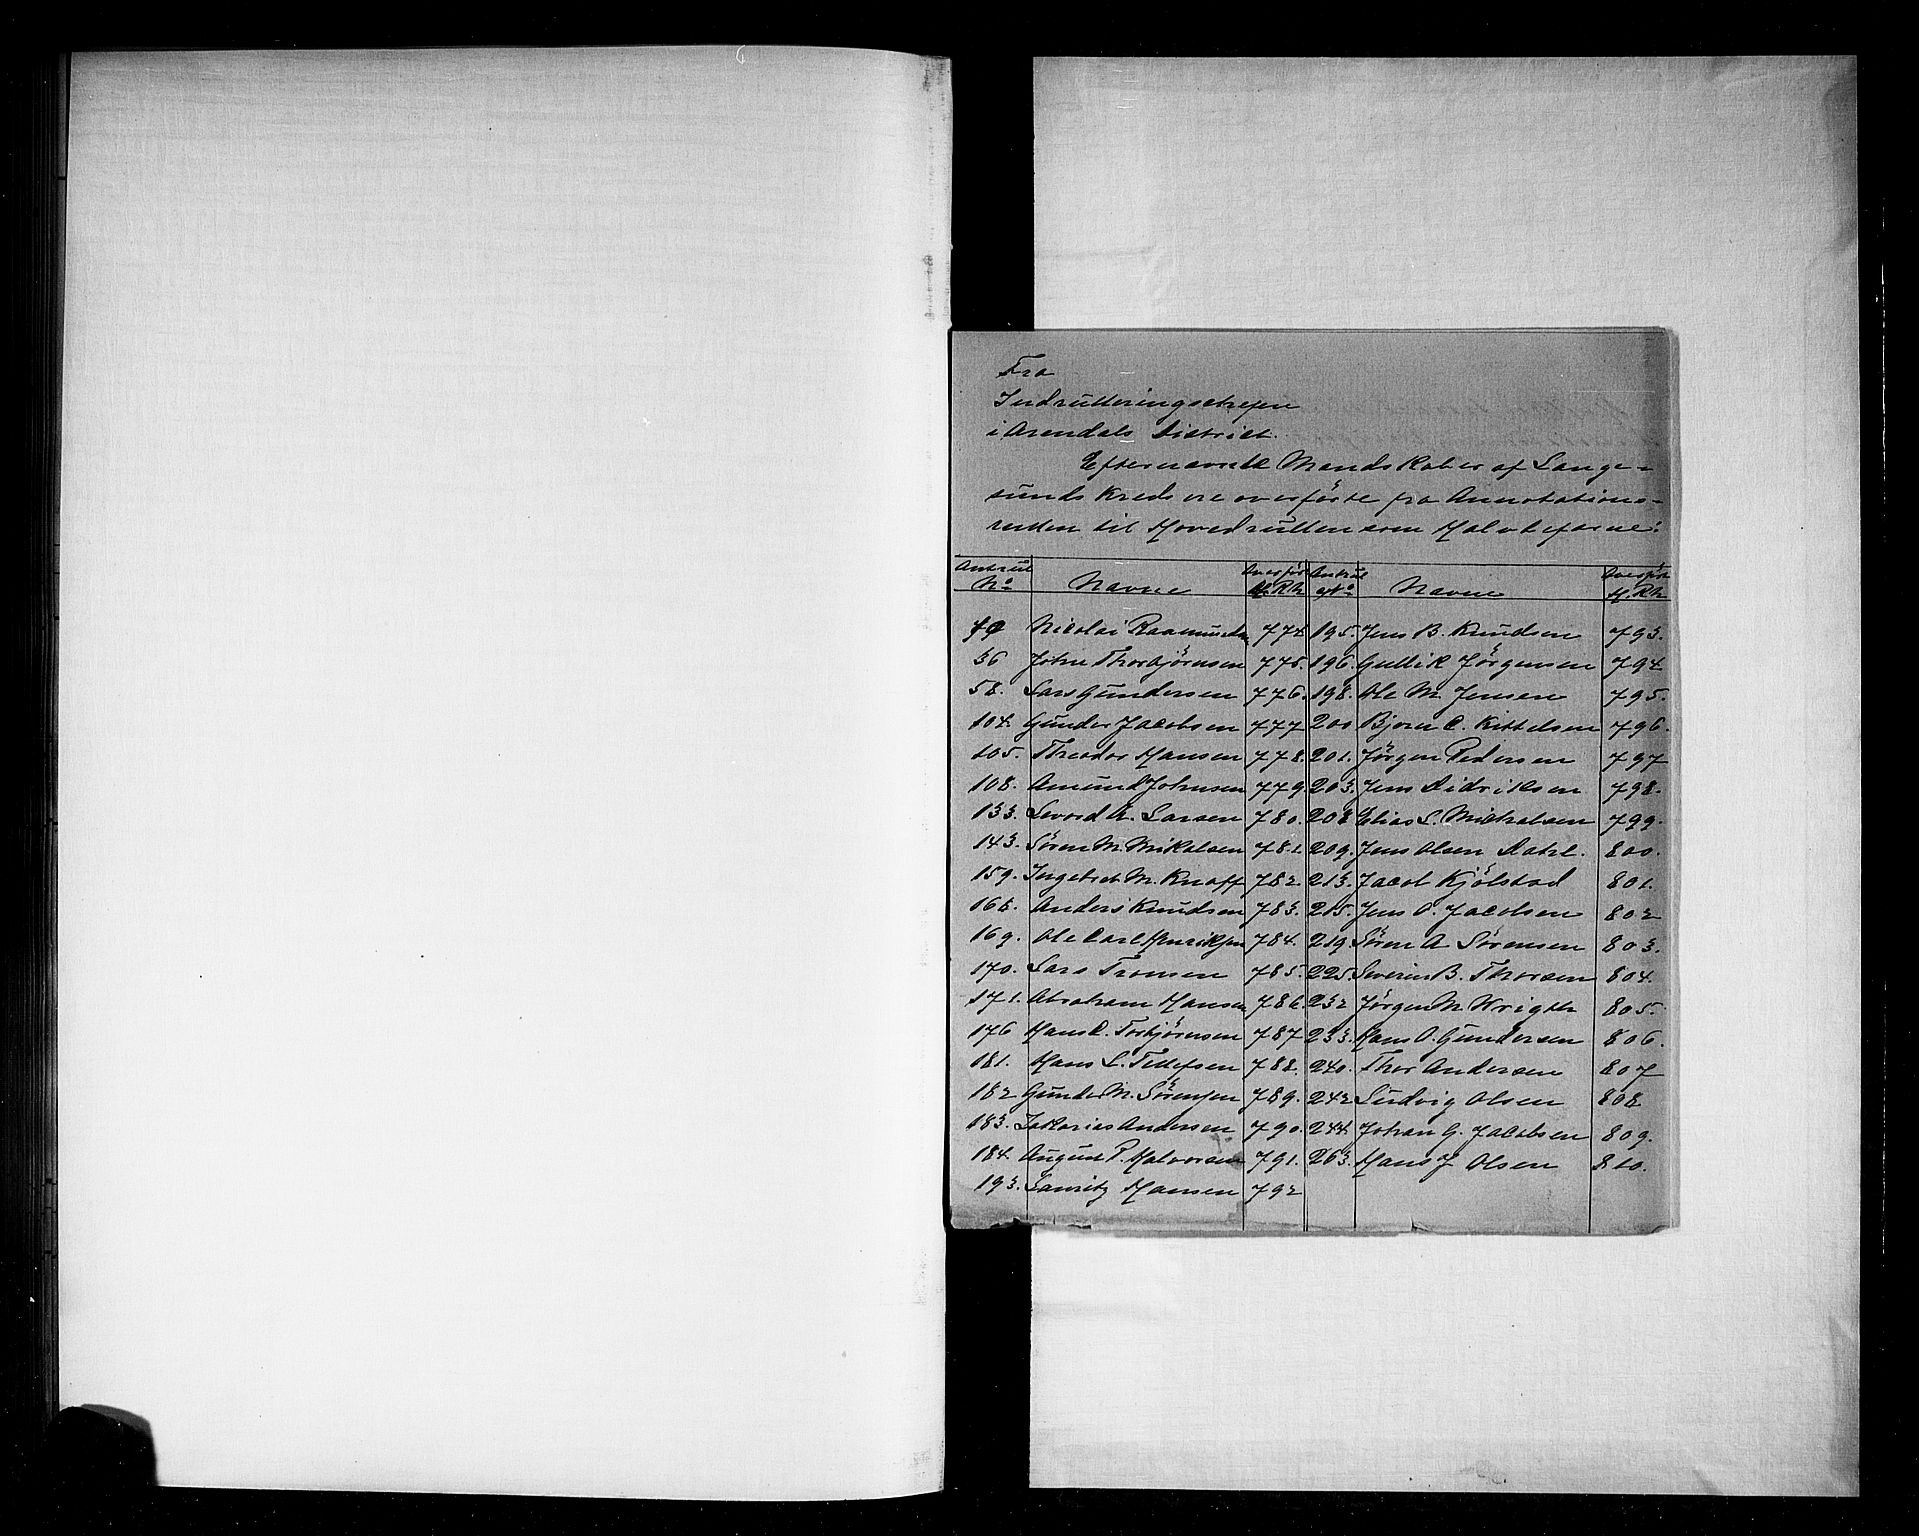 Fra
Indrulleringschefen
i Arendals District.
Efternævnte Mandskaber af Lange-
sunds Kreds ere overførte fra Annotations-
rullen til Hovedrullen som Halvbefarne:
Antrul No Navne Overført H.Rle Antrul No Navne Overført H.Rle
Nicolai Rasmussen 774 195. Jens B. Knudsen 793.
36 John Thorbjörnsen 775. 196. Gullik Jörgensen 794
58. Lars Gundersen 776. 198. Ole M. Jensen 795.
104. Gunder Jacobsen 777 200 Bjorn C. Kittelsen 796.
105. Theodor Hansen 778. 201. Jörgen Pedersen 797
108. Amund Johnsen 779. 203. Jens Didriksen 798.
133. Sevord A. Larsen 780. 208 Elias L. Michalsen 799.
143. Sören M. Mikalsen 781. 209. Jens Olsen Dahl. 800.
159. Ingebret M. Knoff 782. 213. Jacob Kjölstad 801.
168. Anders Knudsen 783. 215. Jens O. Jacobsen 802
169. Ole Carl Henriksen 784. 219. Sören A Sörensen 803.
170. Lars Tronsen 785. 225. Severin B. Thorsen 804.
171. Abraham Hansen 786. 232 Jörgen M. Wrigter 805.
176 Hans C. Torbjörnsen 787 233. Hans O. Gundersen 806.
181. Hans L. Tellefsen 788. 240. Thor Andersen 807
182 Gunder M. Sörensen 789. 242 Ludvig Olsen 808
183. Zakarias Andersen 790. 244. Johan G. Jacobsen 809.
184. August P. Halvorsen 791. 263. Hans J Olsen 810.
193. Lauritz Hansen 792